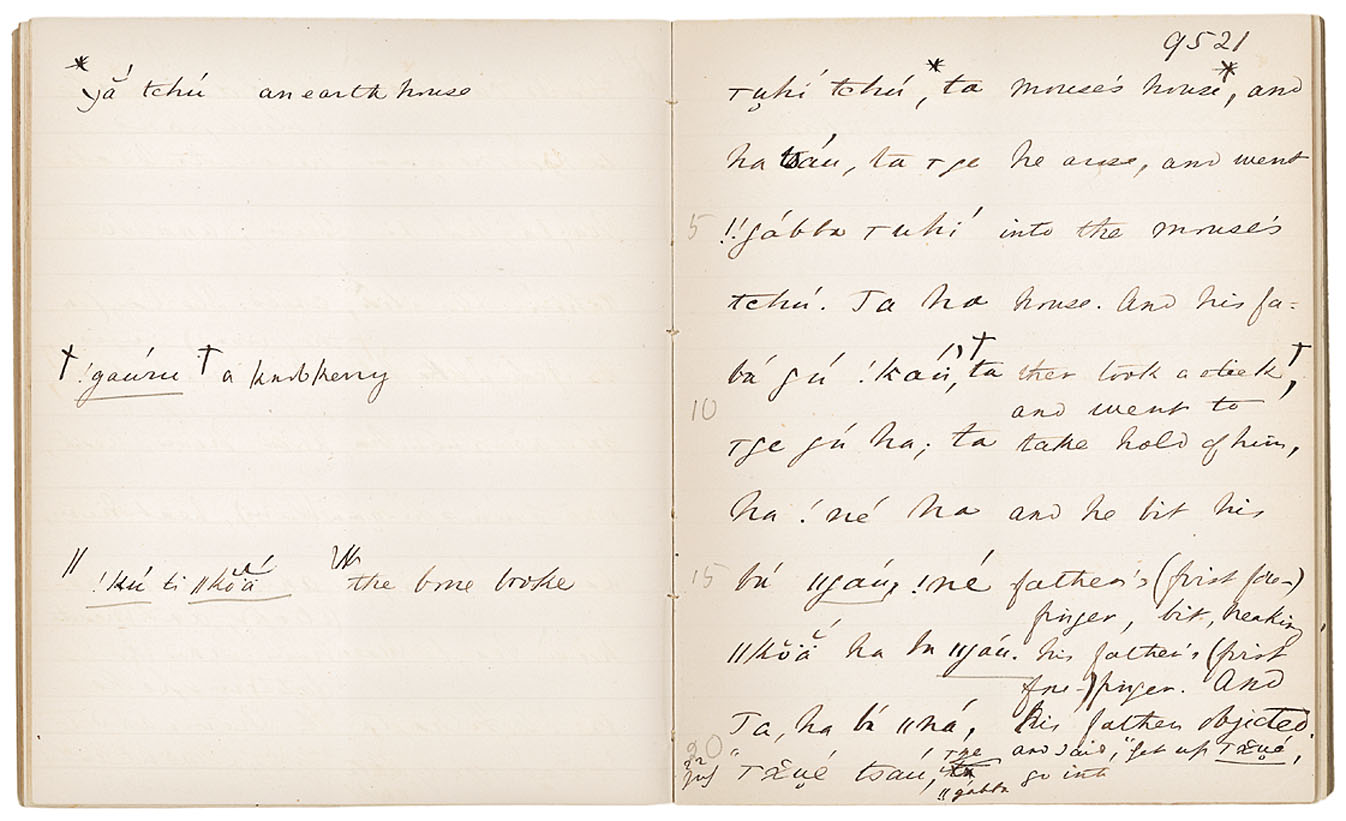 * yắ tchú an earth house
† !gaúru † a knobkerry
// !kú ti //kŏ́ă̈ the bone broke
9521
ꞇu̯hí tchú,* ta mouse's house*, and
ha tsáu, ta ꞇge he arose, and went
5 !'gábba ꞇuhí into the mouse's
tchú. Ta ha house. And his fa-
bá gú !kaú,† ta ther took a stick†,
10 and went to
ꞇge gú ha; ta take hold of him,
ha !né ha and he bit his
15 bá //gáu, !né father's (first fore-)
finger, bit, breaking
//kŏ́ă̈ ha ba //gáu. his father's (first
fore-) finger. And
Ta, ha bá //ná, his father objected
20 ꞇge and said, "get up ꞇx̆u̯é,
"ꞇx̆u̯é tsaú, go into
//gábba